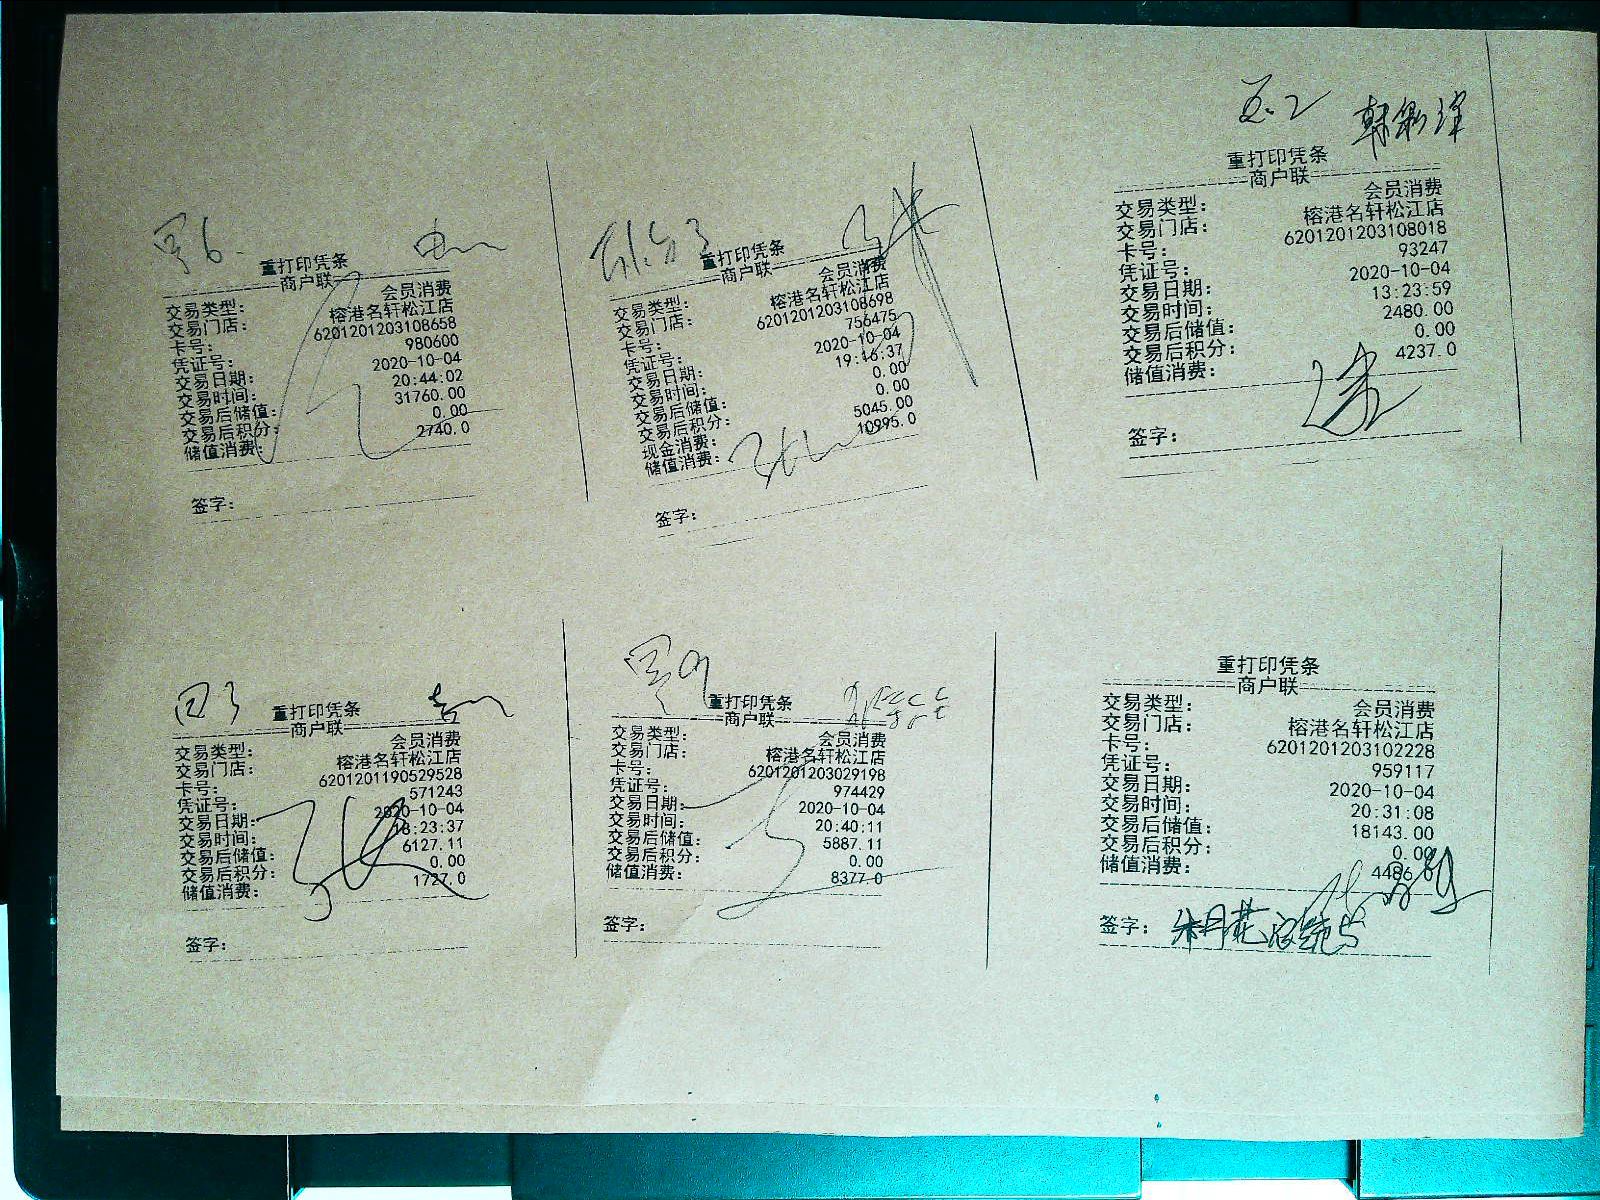 重打印凭条
商户联
交易类型: 会员消费
交易门店: 榕港名轩松江店
卡号: 6201201203108658
凭证号: 980600
交易日期: 2020-10-04
交易时间: 20:44:02
交易后储值: 31760.00
交易后积分: 0.00
储值消费: 2740.0
签字:
重打印凭条
商户联
交易类型: 会员消费
交易门店: 榕港名轩松江店
卡号: 6201201203108698
凭证号: 756475
交易日期: 2020-10-04
交易时间: 19:16:37
交易后储值: 0.00
交易后积分: 0.00
现金消费: 5045.00
储值消费: 10995.0
签字:
重打印凭条
商户联
交易类型: 会员消费
交易门店: 榕港名轩松江店
卡号: 6201201203108018
凭证号: 93247
交易日期: 2020-10-04
交易时间: 13:23:59
交易后储值: 2480.00
交易后积分: 0.00
储值消费: 4237.0
签字:
重打印凭条
商户联
交易类型: 会员消费
交易门店: 榕港名轩松江店
卡号: 6201201190529528
凭证号: 571243
交易日期: 2020-10-04
交易时间: 18:23:37
交易后储值: 6127.11
交易后积分: 0.00
储值消费: 1727.0
签字:
重打印凭条
商户联
交易类型: 会员消费
交易门店: 榕港名轩松江店
卡号: 6201201203029198
凭证号: 974429
交易日期: 2020-10-04
交易时间: 20:40:11
交易后储值: 5887.11
交易后积分: 0.00
储值消费: 8377.0
签字:
重打印凭条
商户联
交易类型: 会员消费
交易门店: 榕港名轩松江店
卡号: 6201201203102228
凭证号: 959117
交易日期: 2020-10-04
交易时间: 20:31:08
交易后储值: 18143.00
交易后积分: 0.00
储值消费: 4486.0
签字: 朱月花